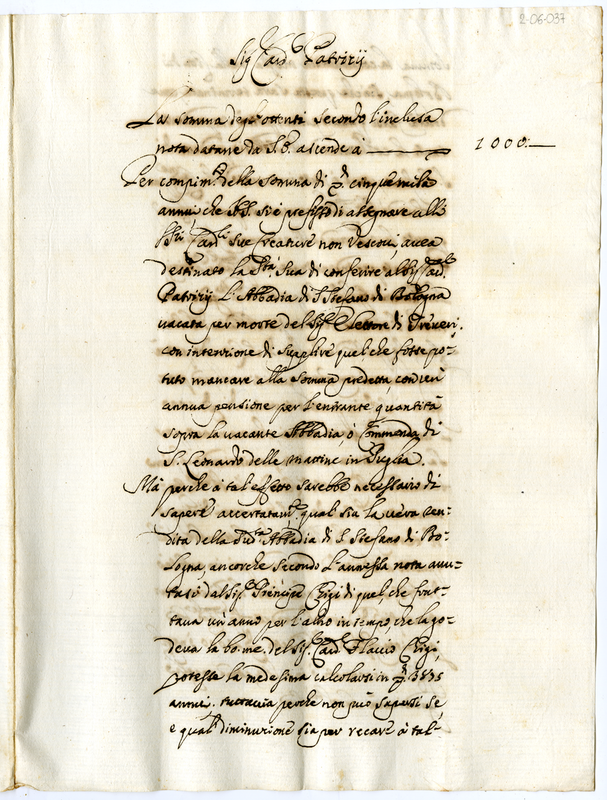 2-06-037
Sig.r Card. Patrizij
La somma degl'ottenti secondo l'inclusa
nota datane da S.E. ascende a — 1000:—
Per compim.to della somma di cinque mila
annui che si è prefisso di assegnare alli
Card.li sue Creature non Vescovi, avea
destinato la S.tà Sua di conferire al Sig.r Card.
Patrizij l'Abbadia di S. Stefano di Bologna
vacata per morte del Sig.r Elettore di Treveri,
con intenzione di supplire quel che fosse po-
tuto mancare alla somma predetta, con un'
annua pensione per l'entrante quantità
sopra la vacante Abbadia, ò Commenda di
S. Leonardo delle Mattine in Puglia.
Mà perche à tal'effetto sarebbe necessario di
sapere accertatam.te qual sia la vera ren-
dita della Sud.a Abbadia di S. Stefano di Bo-
logna, ancorche secondo l'annessa nota avu-
tasi dal Sig.r Prencipe Chigi di quel, che frut-
tava un'anno per l'altro in tempo, che la go-
deva la bo: me: del Sig.r Card. Flavio Chigi,
potesse la medesima calcolarsi in 3835
annui, tuttavia perche non può sapersi se,
e qual diminuzione sia per recare à tal-